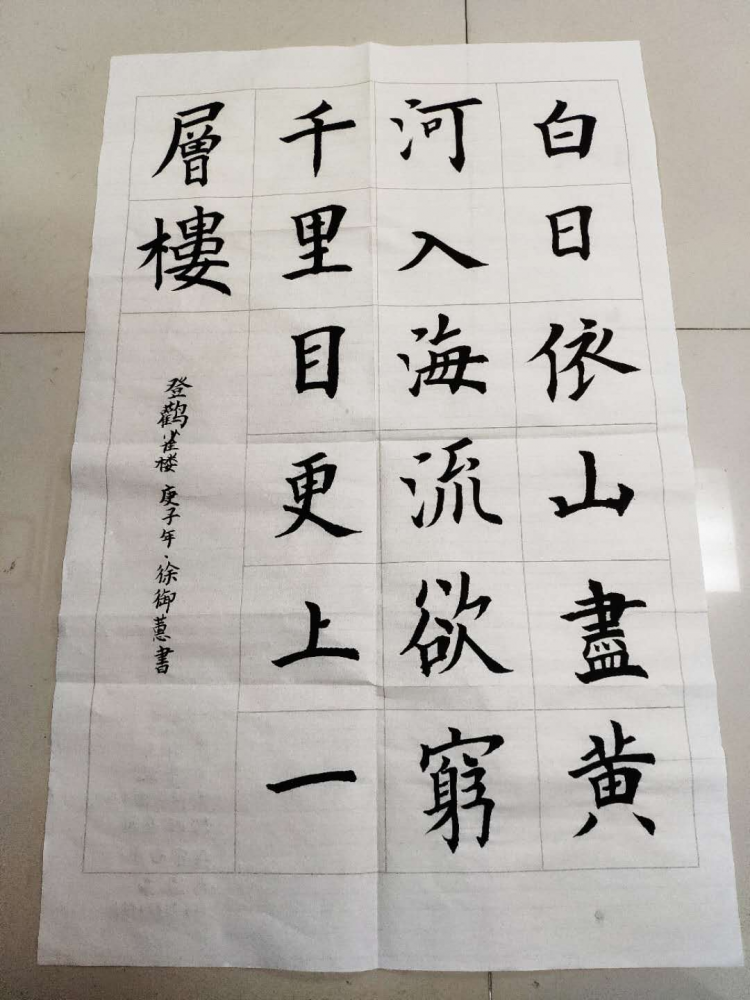 白日依山盡黄
河入海流欲窮
千里目更上一
層樓
登鹳雀楼 庚子年、徐御蕙書